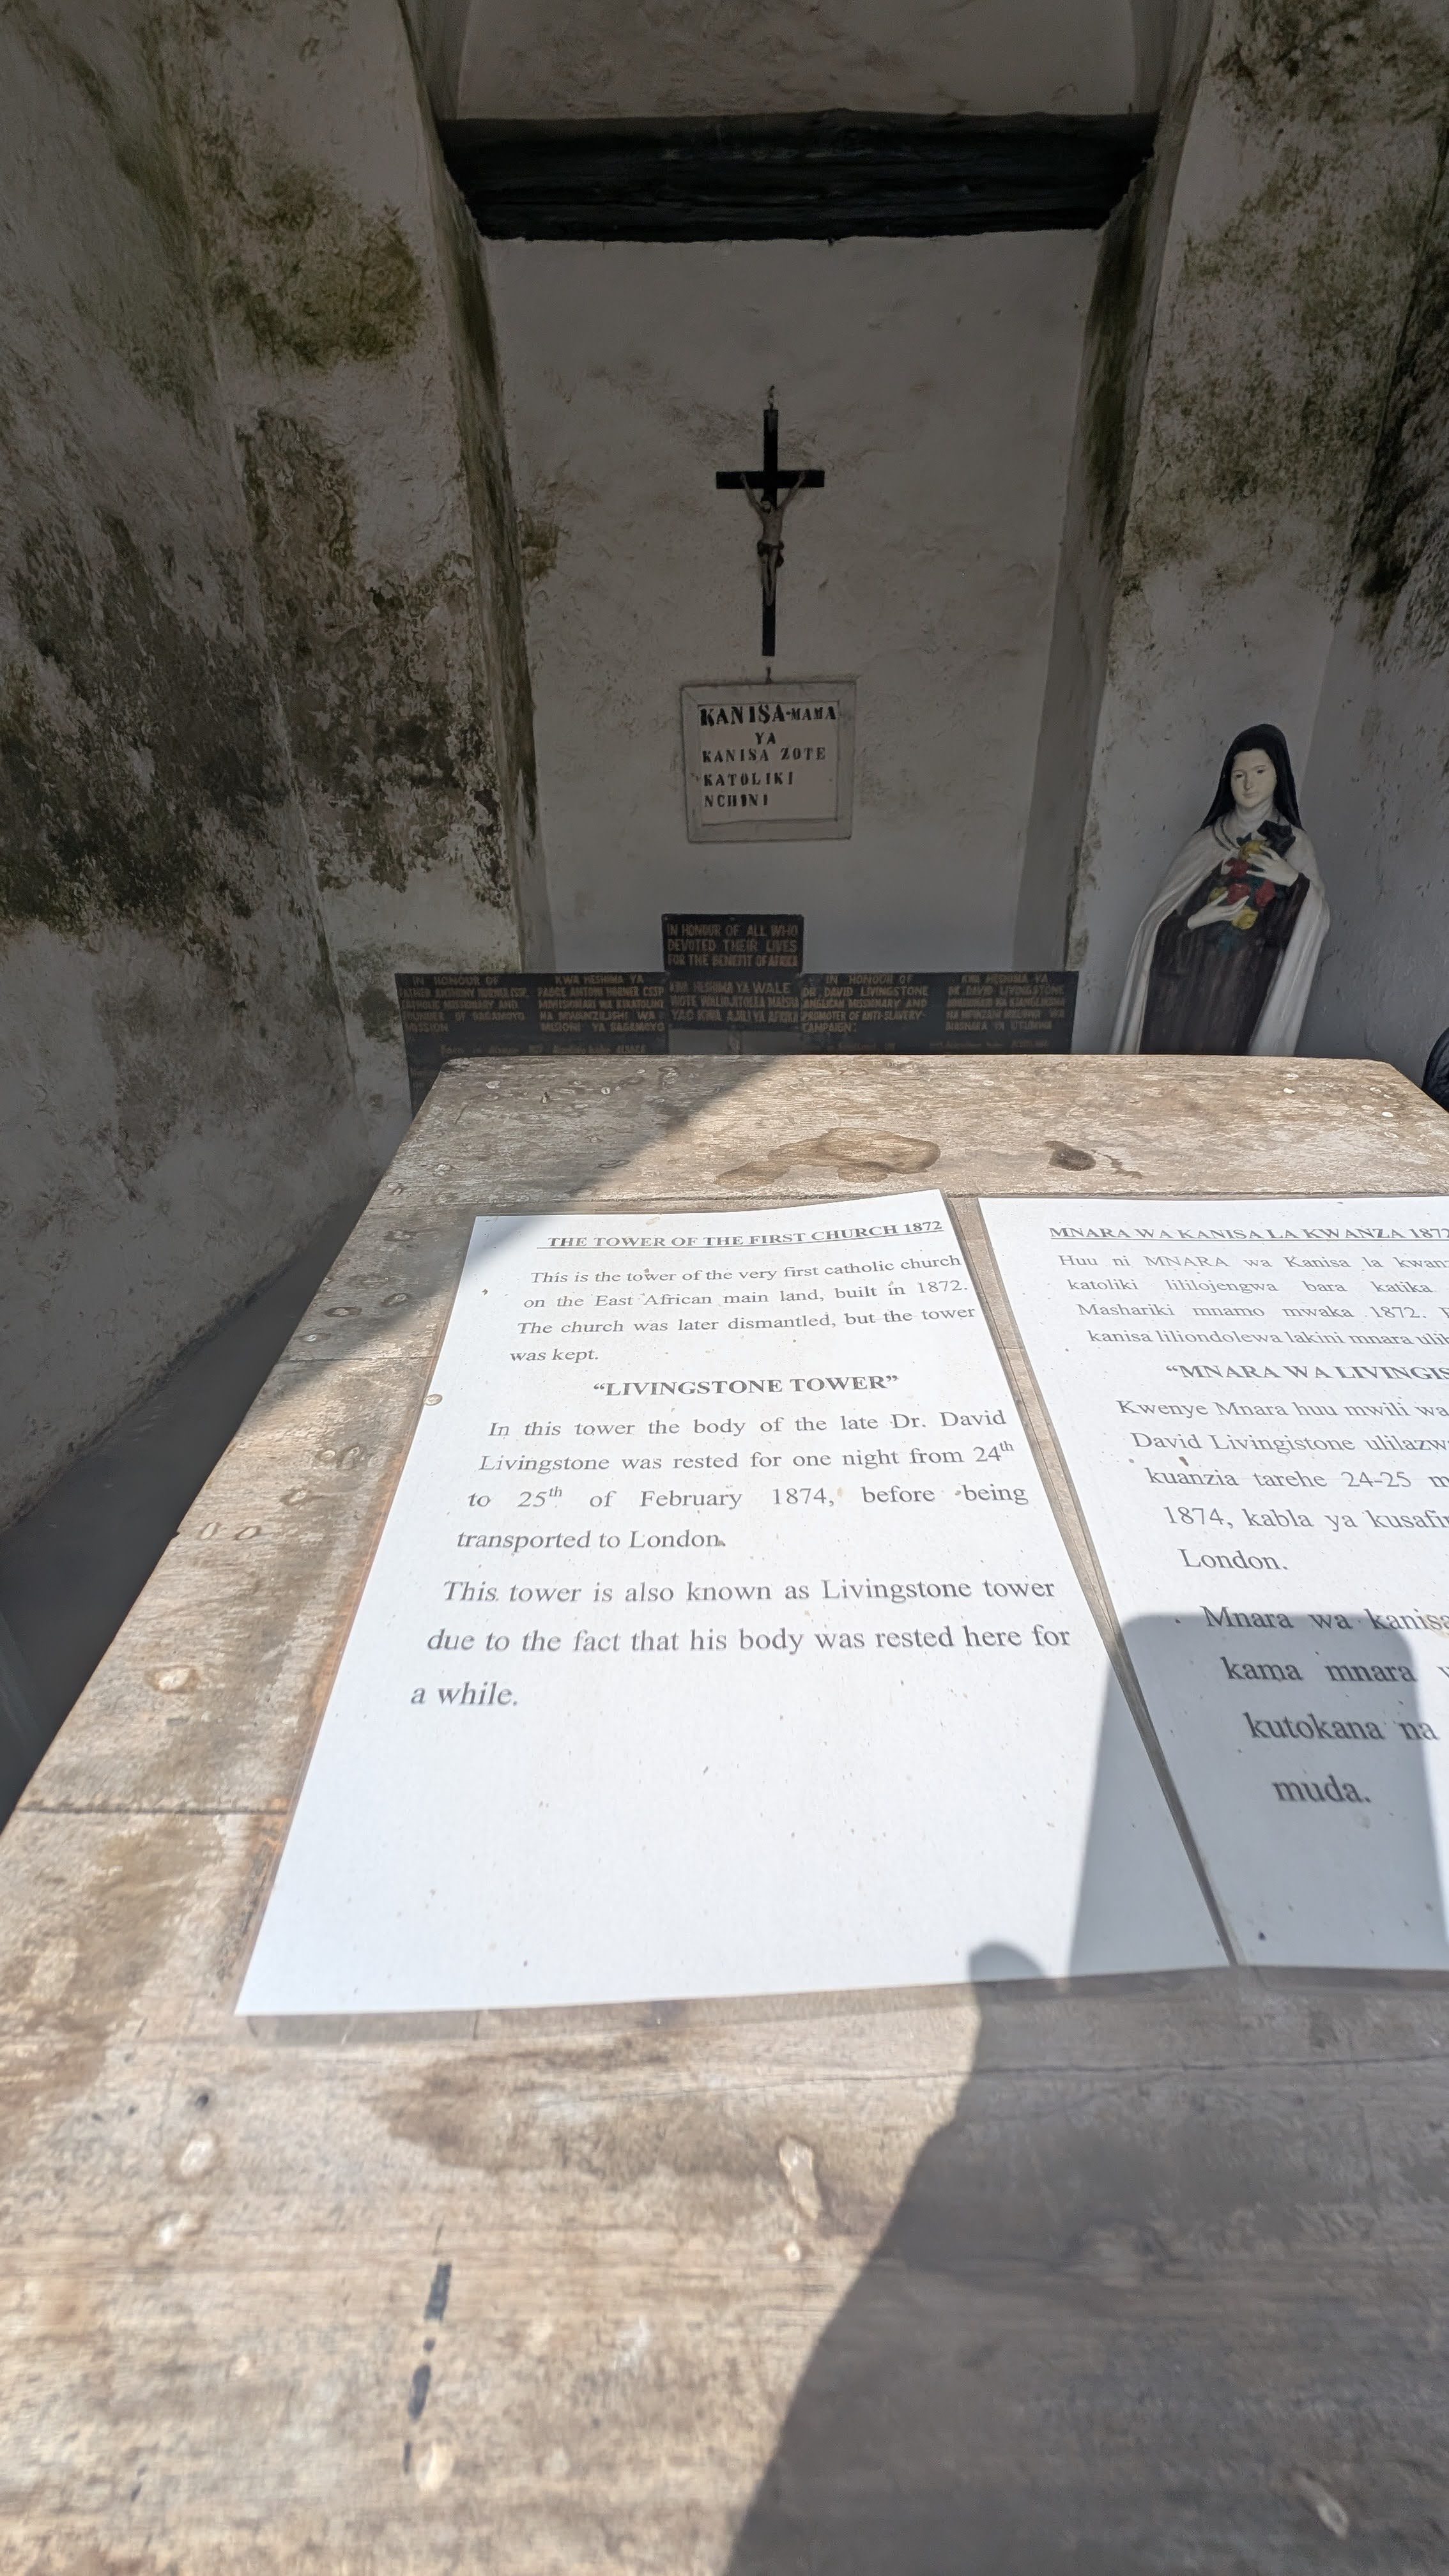 KANISA-MAMA
YA
KANISA ZOTE
KATOLIKI
NCHINI
IN HONOUR OF ALL WHO
DEVOTED THEIR LIVES
FOR THE BENEFIT OF AFRIKA
IN HONOUR OF
FATHER ANTHONY HORNER CSSP
CATHOLIC MISSIONARY AND
FOUNDER OF BAGAMOYO
MISSION
KWA HESHIMA YA
PADRE ANTONI HORNER CSSP
MMISIONARI WA KIKATOLIKI
NA MWANZILISHI WA
MISIONI YA BAGAMOYO
KWA HESHIMA YA WALE
WOTE WALIOJITOLEA MAISHA
YAO KWA AJILI YA AFRIKA
IN HONOUR OF
DR DAVID LIVINGSTONE
ANGLICAN MISSIONARY AND
PROMOTER OF ANTI-SLAVERY-
CAMPAIGN.
KWA HESHIMA YA
DR DAVID LIVINGSTONE
BIASHARA YA UTUMWA
THE TOWER OF THE FIRST CHURCH 1872
This is the tower of the very first catholic church
on the East African main land, built in 1872.
The church was later dismantled, but the tower
was kept.
“LIVINGSTONE TOWER”
In this tower the body of the late Dr. David
Livingstone was rested for one night from 24th
to 25th of February 1874, before being
transported to London.
This tower is also known as Livingstone tower
due to the fact that his body was rested here for
a while.
MNARA WA KANISA LA KWANZA 1872
Huu ni MNARA wa Kanisa la
katoliki lililojengwa bara katika
Mashariki mnamo mwaka 1872.
kanisa liliondolewa lakini mnara
“MNARA WA
Kwenye Mnara huu mwili wa
David Livingistone
kuanzia tarehe 24-25
1874, kabla ya
London.
Mnara wa
kama mnara
kutokana na
muda.